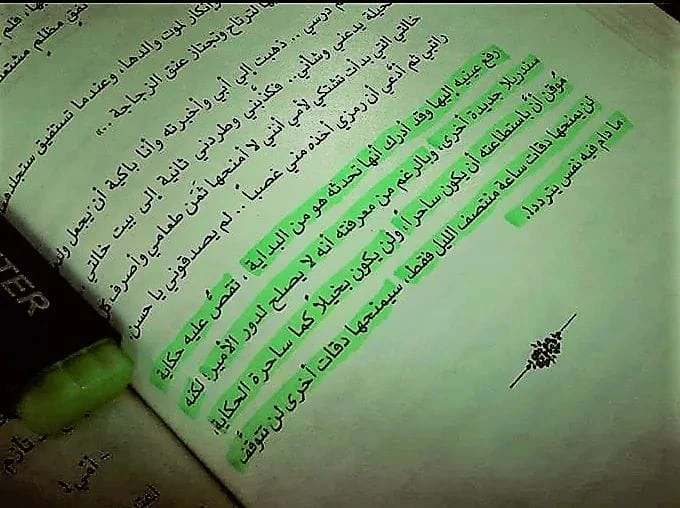 نفق مظلم
وإنكار لموت والدها، وعندما تستفيق ستجد
ها لترتاح وتجتاز عنق الزجاجة ..»
درسي .. ذهبت إلى أبي وأخبرته وأنا باكية أن يجعل
بدعني وشأني.. فكذبني وطردني ثانية إلى بيت خالتي
خالتي التي بدأت تشتكي لأمي أنني لا أمنحها ثمن طعامي وأصرف كل
راتبي ثم أدّعي أن رمزي أخذه مني غصباً .. لم يصدقوني يا حسن
رفع عينيه إليها وقد أدرك أنها تحدثه هو من البداية ، تقصُّ عليه حكاية
سندريلا جديدة، أخرى، وبالرغم من معرفته أنه لا يصلح لدور الأمير، لكنه
مُوقن أنَّ باستطاعته أن يكون ساحراً، ولن يكون بخيلاً كما ساحرة الحكاية،
لن يمنحها دقات ساعة منتصف الليل فقط، سيمنحها دقات أخرى لن تتوقَّف
ما دام فيه نفس يتردد!.
TER